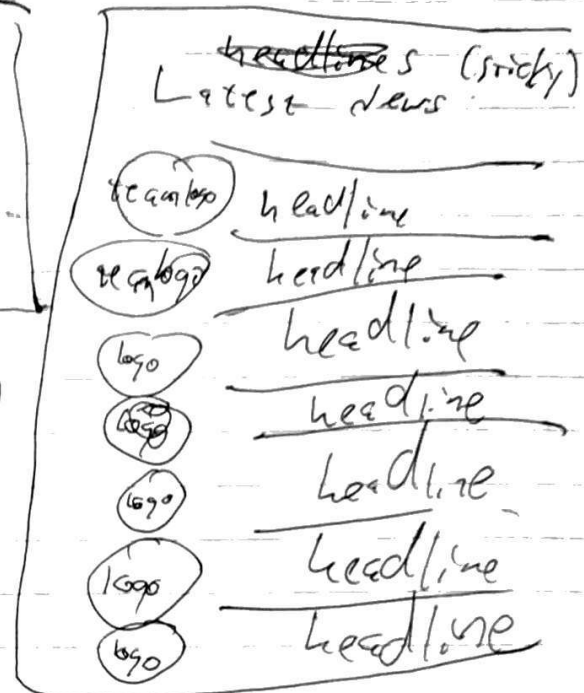 headlines (sticky)
Latest News
team logo headline
team logo headline
logo headline
logo headline
logo headline
logo headline
logo headline